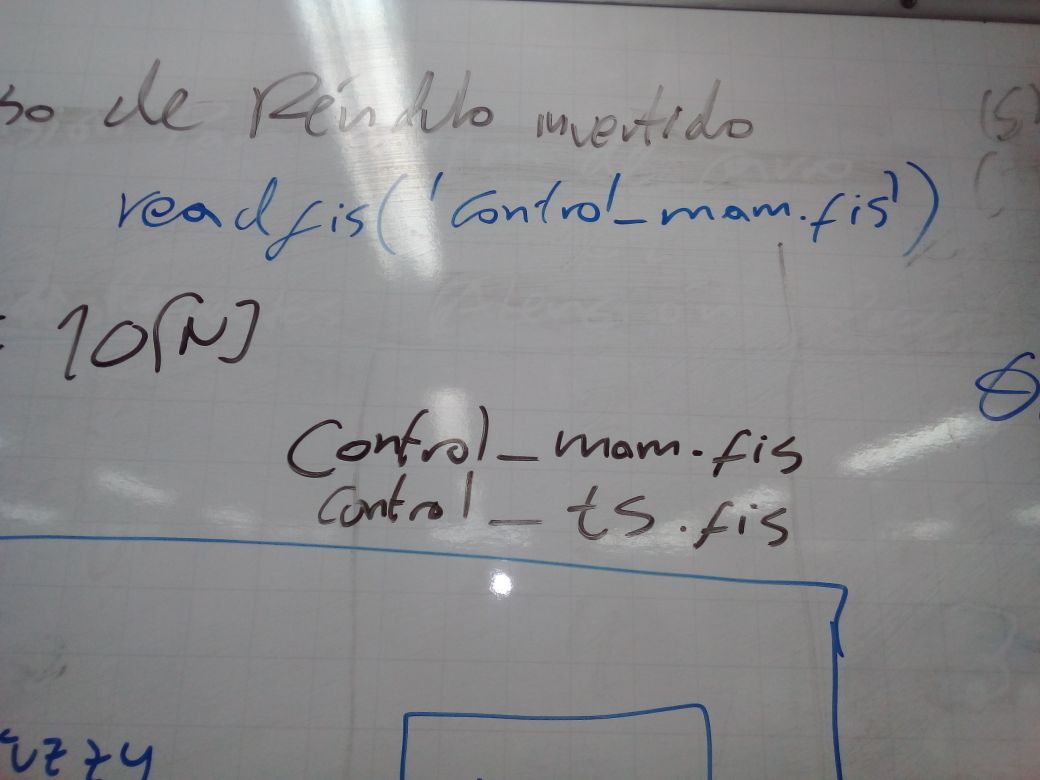 so de Péndulo invertido
readfis('Control_mam.fis')
= 10[N]
Control_mam.fis
Control_ts.fis
fuzzy